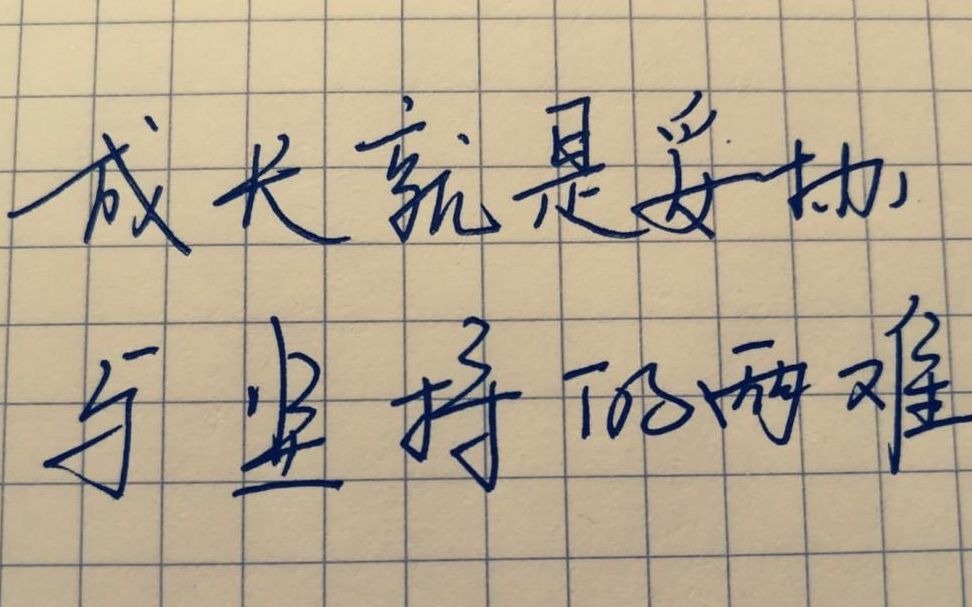 成长就是妥协
与坚持的两难